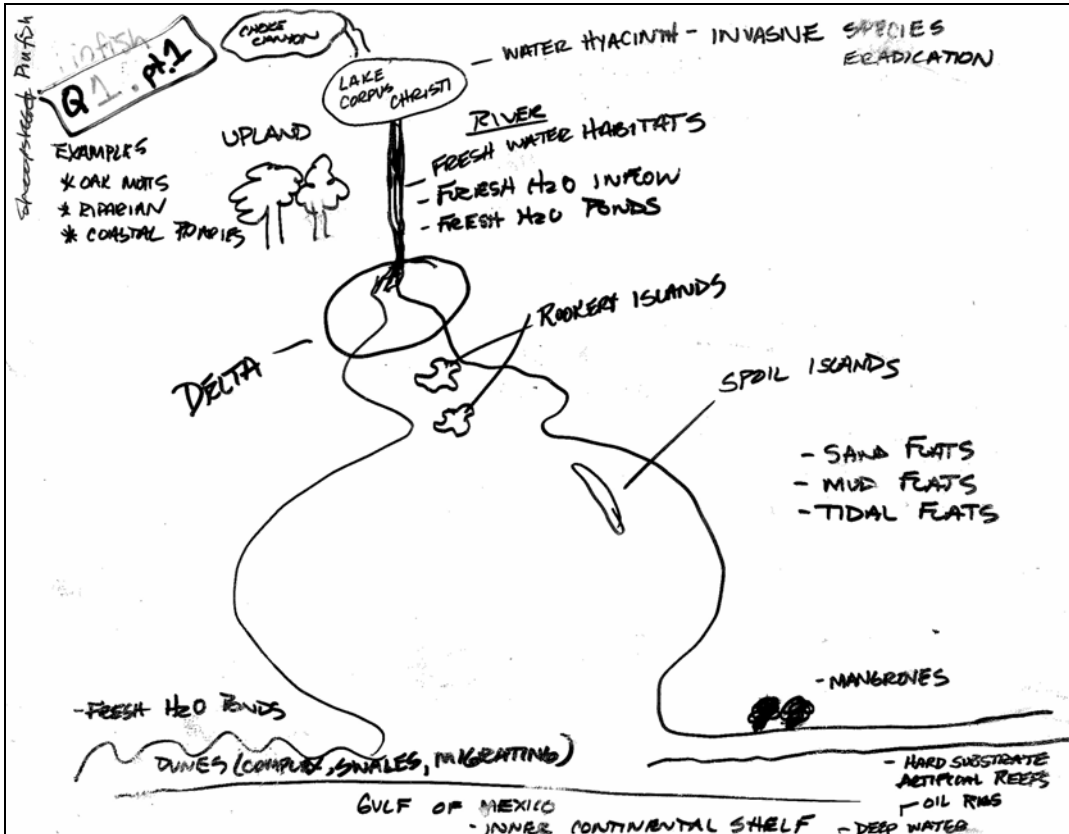 Sheepshead Pinfish
infish
Q 1. pt.1
CHOKE
CANYON
LAKE
CORPUS CHRISTI
- WATER HYACINTH - INVASINE SPECIES
ERADICATION
EXAMPLES
* OAK MOTTS
* RIPARIAN
* COASTAL PRAIRIES
UPLAND
RIVER
- FRESH WATER HABITATS
- FURESH H2O INFLOW
- FRESH H2O PONDS
DELTA
ROOKERY ISLANDS
SPOIL ISLANDS
- SAND FLATS
- MUD FLATS
- TIDAL FLATS
- MANGROVES
- FRESH H2O PONDS
DUNES (COMPLEX, SWALES, MIGRATING)
- HARD SUBSTRATE
ARTIFICIAL REEFS
OIL RIGS
GULF OF MEXICO
- INNER CONTINENTAL SHELF
- DEEP WATER